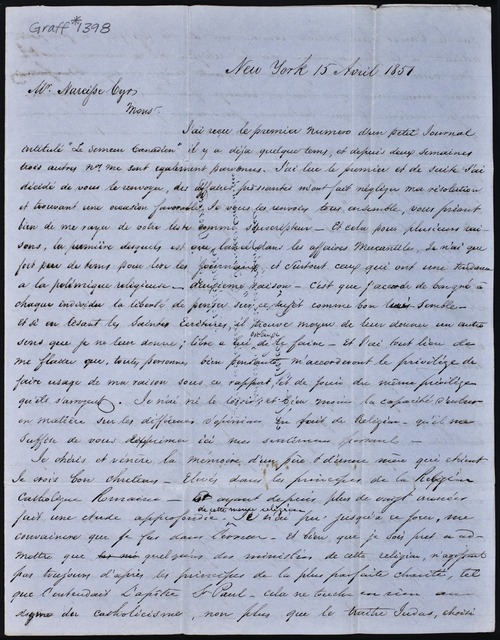 Graff * 1398
New York 15 Avril 1851
Mr. Narcisse Cyr
Mons.
J'ai reçu le premier numero d'un petit Journal
intitulé "Le Semeur Canadien" il y a déja quelque tems, et depuis deux semaines
trois autres Nos. me sont également parvenus. J'ai lue le premier et de suite j'ai
décidé de vous le renvoyer, des affaires pressantes m'ont fait négliger ma résolution
et trouvant une occasion favorable Je vous les renvois tous ensemble, vous priant
bien de me rayer de votre liste comme souscripteur — Et cela pour plusieurs rai
sons, la première desquels est que, lancé dans les affaires Mercantiles, Je n'ai que
fort peu de tems pour lire les Journaux, et surtout ceux qui ont une tendance
a la polémique religieuse — deuxième raison — C'est que j'accorde de bon gré a
chaque individu la liberté de penser sur ce sujet comme bon lui semble —
et si en lisant les Saintes Ecritures, il trouve moyen de leur donner un autre
sens que je ne leur donne, libre a lui de le faire — Et j'ai tout lieu de
me flatter que, toutes personnes bien pensantes, m'accorderont le privilége de
faire usage de ma raison sous ce rapport, et de jouir du même privilége
qu'ils s'arrogent. Je n'ai ni le loisir, et bien moins la capacité d'entrer
en matière sur les différences d'opinions en fait de Religion — qu'il me
suffise de vous exprimer ici mes sentimens personnels —
Je chéris et vénère la mémoire d'un père et d'une mère qui étaient
Je crois bon chretiens — Elevés dans les principes de la Religion
Catholique Romaine — Et ayant depuis plus de vingt années
fait une etude approfondie de cette même religion, Je n'ai pu jusqu'à ce jour, me
convaincre que je fus dans l'erreur — et bien que je sois pret a ad-
mettre que quelques uns des ministres de cette religion, n'agissent
pas toujours d'après les principes de la plus parfaite charité, tel
que l'entendait l'apôtre St Paul — cela ne touche en rien au
dogme du catholicisme, non plus que le traitre Judas, choisi